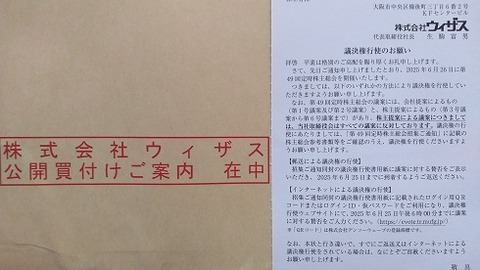 株式会社ウィザス
公開買付けご案内 在中
大阪市中央区備後町3丁目6番2号
KFセンタービル
株式会社ウィザス
代表取締役社長 生駒富男
議決権行使のお願い
拝啓 平素は格別のご高配を賜り厚くお礼申し上げます。
さて、先日ご通知申し上げましたとおり、2025年6月26日に第
49回定時株主総会を開催いたします。
つきましては、以下のいずれかの方法により議決権を行使して
いただきますようお願い申し上げます。
なお、第49回定時株主総会の議案には、会社提案によるもの
(第1号議案及び第2号議案)と、株主提案によるもの(第3号議
案から第6号議案まで)があり、株主提案による議案につきまして
は、当社取締役会はすべての議案に反対しております。議決権の行
使にあたりましては、「第49回定時株主総会招集ご通知」に記載の
株主総会参考書類等をご確認のうえ、議決権を行使していただきま
すようお願い申し上げます。
【郵送による議決権の行使】
招集ご通知同封の議決権行使書用紙に議案に対する賛否をご表示
いただき、2025年6月25日までに到着するようご返送ください。
【インターネットによる議決権の行使】
招集ご通知同封の議決権行使書用紙に記載のログイン用QRコー
ドまたはログインID・仮パスワードをご利用になり、議決権行
使ウェブサイトにて、2025年6月25日午後6時00分までに議案に
対する賛否をご入力ください。(https://evote.tr.mufg.jp/)
※「QRコード」は株式会社デンソーウェーブの登録商標です。
なお、本状と行き違いで、すでにご返送又はインターネットによる
議決権行使をされている場合は、なにとぞご容赦くださいますよう
お願い申し上げます。
敬具